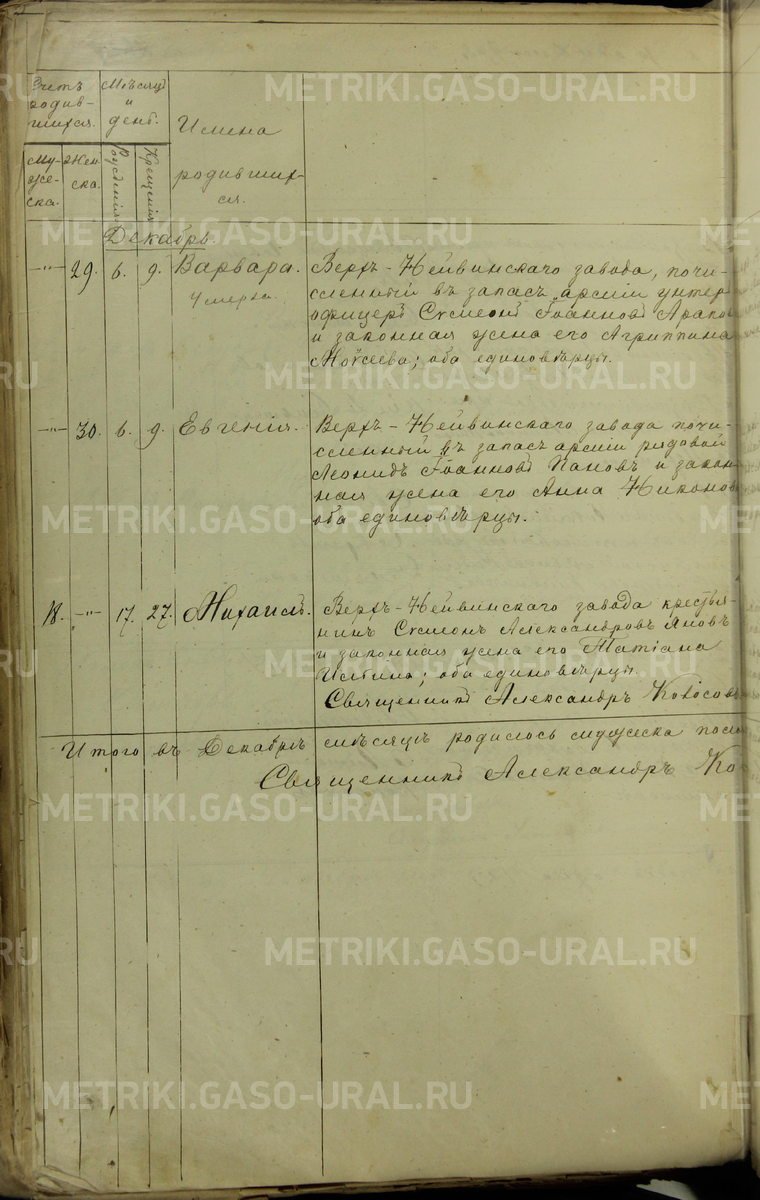 Счетъ родив-шихся.
Мѣсяцъ и день.
Имена родивших-ся.
Му-жес-ка.
Жен-ска.
Рожденія
Крещенія
Декабрь.
-"- 29. 6. 9. Варвара. Верхъ-Нейвинскаго завода, почи-
Умерла. сленный въ запасъ арміи унтер
офицеръ Сѵмеонъ Іоанновъ Арапо
и законная жена его Агриппина
Моѵсеева; оба единовѣрцы.
-"- 30. 6. 9. Евгенія. Верхъ-Нейвинскаго завода почи-
сленный въ запасъ арміи рядовой
Леонидъ Іоанновъ Пановъ и закон-
ная жена его Анна Никонов
оба единовѣрцы.
18. -"- 17. 27. Михаилъ. Верхъ-Нейвинскаго завода крестья-
нинъ Сѵмеонъ Александровъ Яновъ
и законная жена его Татіана
оба единовѣрцы.
Священникъ Александръ
Итого въ Декабрѣ мѣсяцѣ родилось мужеска
Священникъ Александръ Ко
METRIKI.GASO-URAL.RU